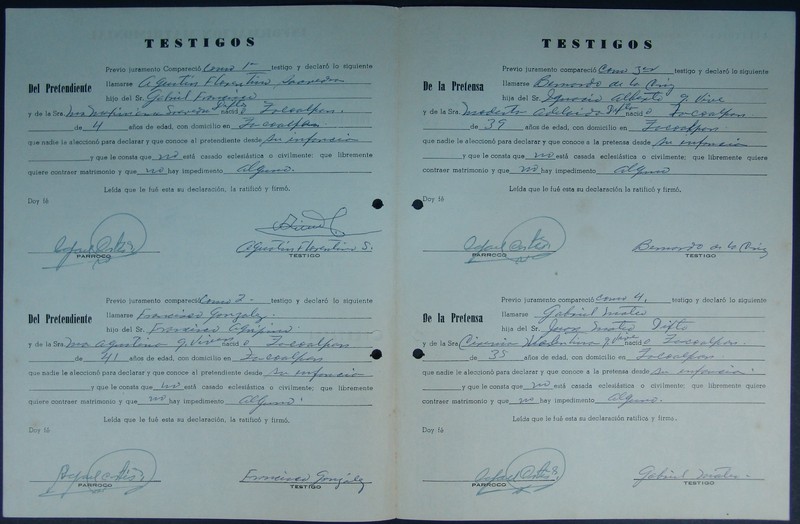 TESTIGOS
Previo juramento Compareció Como 1er testigo y declaró lo siguiente
Del Pretendiente
llamarse Agustín Florentino Saavedra
hijo del Sr. Gabriel Francisco
y de la Sra. Saavedra nació
de 4 años de edad, con domicilio en
que nadie le aleccionó para declarar y que conoce al pretendiente desde su
y que le consta que no está casado eclesiástica o civilmente; que libremente
quiere contraer matrimonio y que no hay impedimento alguno.
Leída que le fué esta su declaración, la ratificó y firmó.
Doy fé
Agustín Florentino S.
PARROCO
TESTIGO
Previo juramento compareció Como 2- testigo y declaró lo siguiente
Del Pretendiente
llamarse Francisco González
hijo del Sr. Francisco
y de la Sra. Ma Agustina q. Vive nació
de 41 años de edad, con domicilio en
que nadie le aleccionó para declarar y que conoce al pretendiente desde su
y que le consta que no está casado eclesiástica o civilmente; que libremente
quiere contraer matrimonio y que no hay impedimento alguno.
Leída que le fué esta su declaración, la ratificó y firmó.
Doy fé
Francisco González
PARROCO
TESTIGO
TESTIGOS
Previo juramento compareció Como 3er testigo y declaró lo siguiente
De la Pretensa
llamarse Bernardo de la Cruz
hija del Sr. Ignacio Alberto q. Vive
y de la Sra. Modesta Adelaida Difta nació
de 39 años de edad, con domicilio en
que nadie le aleccionó para declarar y que conoce a la pretensa desde su
y que le consta que no está casada eclesiástica o civilmente; que libremente quiere
contraer matrimonio y que no hay impedimento alguno
Leída que le fué esta su declaración, la ratificó y firmó.
Doy fé
Bernardo de la Cruz
PARROCO
TESTIGO
Previo juramento compareció Como 4. testigo y declaró lo siguiente
De la Pretensa
llamarse Gabriel Mateo
hija del Sr. Mateo Difto
y de la Sra. q. Vive nació
de 35 años de edad, con domicilio en
que nadie le aleccionó para declarar y que conoce a la pretensa desde su
y que le consta que no está casada eclesiástica o civilmente; que libremente quiere
contraer matrimonio y que no hay impedimento alguno.
Leída que le fué esta su declaración, la ratifica y firma.
Doy fé
Gabriel Mateo
PARROCO
TESTIGO